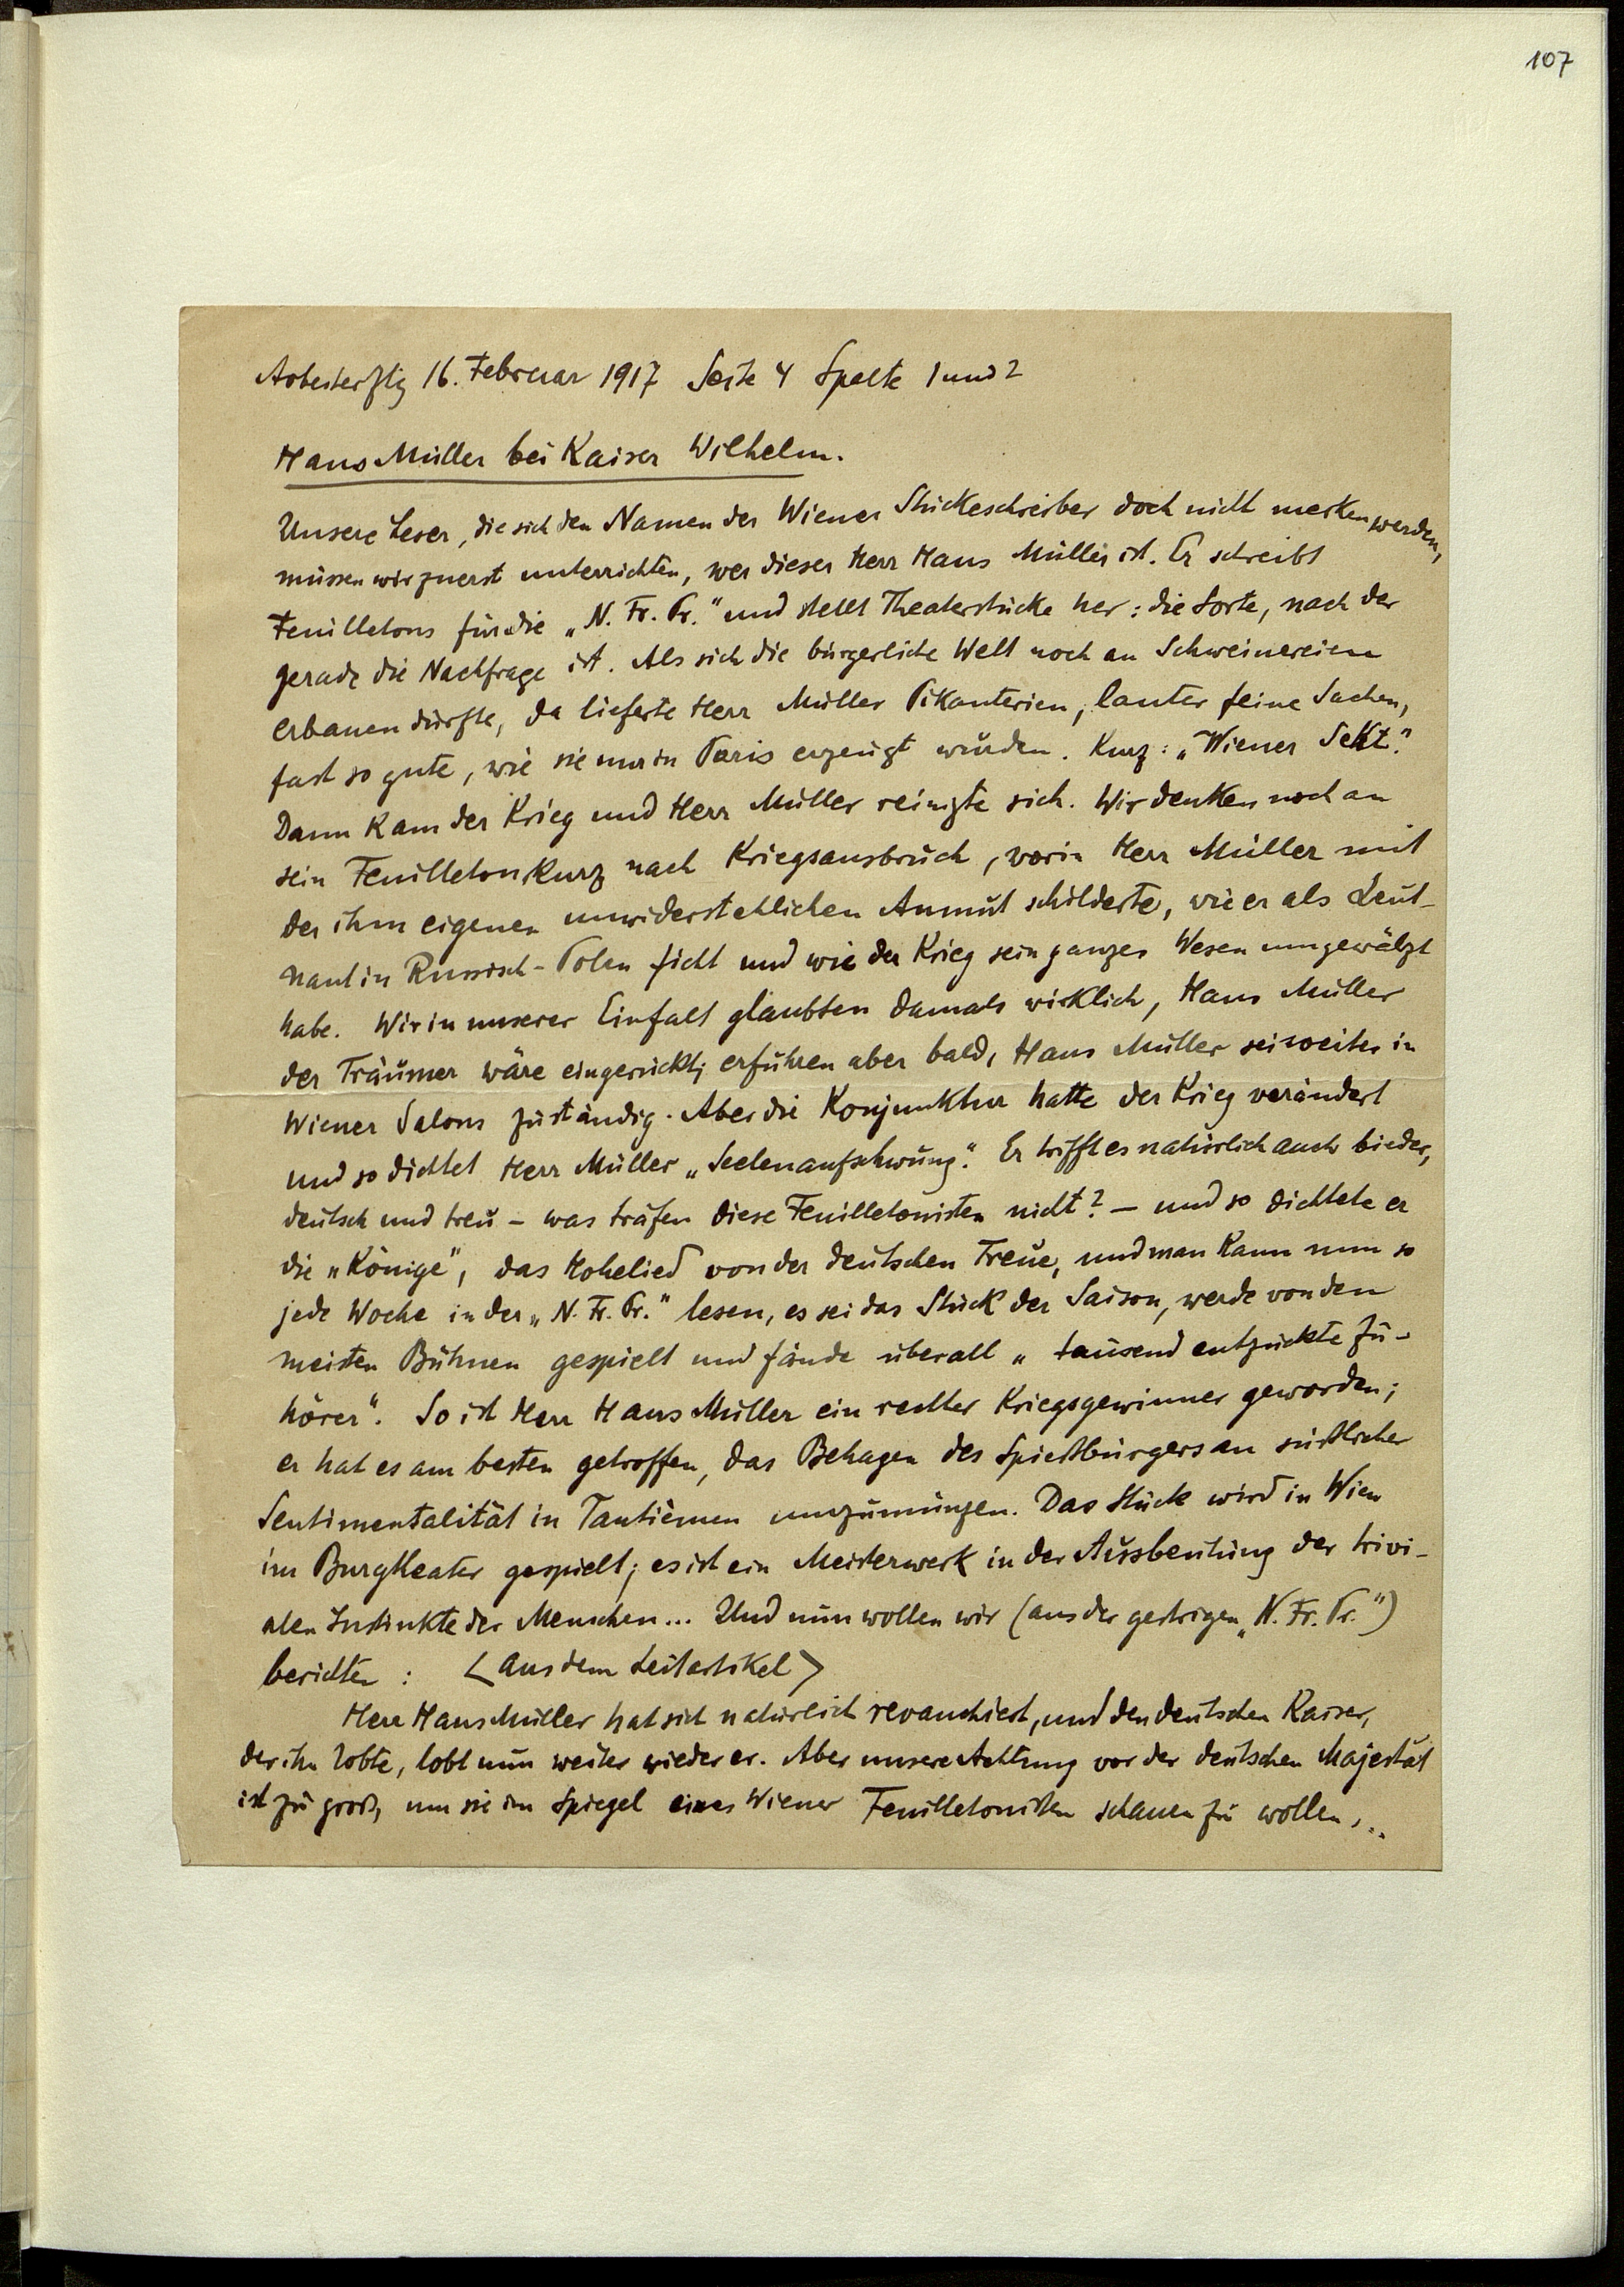 107
Arbeiterztg 16. Februar 1917 Seite 4 Spalte 1 und 2
Hans Müller bei Kaiser Wilhelm.
Unsere Leser, die sich den Namen der Wiener Stückeschreiber doch nicht merken werden,
müssen wir zuerst unterrichten, wer dieser Herr Hans Müller ist. Er schreibt
Feuilletons für die „N. Fr. Pr.“ und stellt Theaterstücke her: die Sorte, nach der
gerade die Nachfrage ist. Als sich die bürgerliche Welt noch an Schweinereien
erbauen durfte, da lieferte Herr Müller Pikanterien, lauter feine Sachen,
fast so gute, wie sie nur in Paris erzeugt wurden. Kurz: „Wiener Sekt.“
Dann kam der Krieg und Herr Müller reinigte sich. Wir denken noch an
sein Feuilleton kurz nach Kriegsausbruch, worin Herr Müller mit
der ihm eigenen unwiderstehlichen Anmut schilderte, wie er als Leut-
nant in Russisch-Polen ficht und wie der Krieg sein ganzes Wesen umgewälzt
habe. Wir in unserer Einfalt glaubten damals wirklich, Hans Müller
der Träumer wäre eingerückt; erfuhren aber bald, Hans Müller sei weiter in
Wiener Salons zuständig. Aber die Konjunktur hatte der Krieg verändert
und so dichtet Herr Müller „Seelenaufschwung.“ Er trifft es natürlich auch bieder,
deutsch und treu – was träfen diese Feuilletonisten nicht? – und so dichtete er
die „Könige“, das Hohelied von der deutschen Treue, und man kann nun so
jede Woche in der „N. Fr. Pr.“ lesen, es sei das Stück der Saison, werde von den
meisten Bühnen gespielt und fände überall „tausend entzückte Zu-
hörer“. So ist Herr Hans Müller ein rechter Kriegsgewinner geworden;
er hat es am besten getroffen, das Behagen des Spießbürgers an süßlicher
Sentimentalität in Tantièmen umzumünzen. Das Stück wird in Wien
im Burgtheater gespielt; es ist ein Meisterwerk in der Ausbeutung der trivi-
alen Instinkte der Menschen... Und nun wollen wir (aus der gestrigen „N. Fr. Pr.“)
berichten: <Aus dem Leitartikel>
Herr Hans Müller hat sich natürlich revanchiert, und den deutschen Kaiser,
der ihn lobte, lobt nun weiter wieder er. Aber unsere Achtung vor der deutschen Majestät
ist zu groß, um sie im Spiegel eines Wiener Feuilletonisten schauen zu wollen...